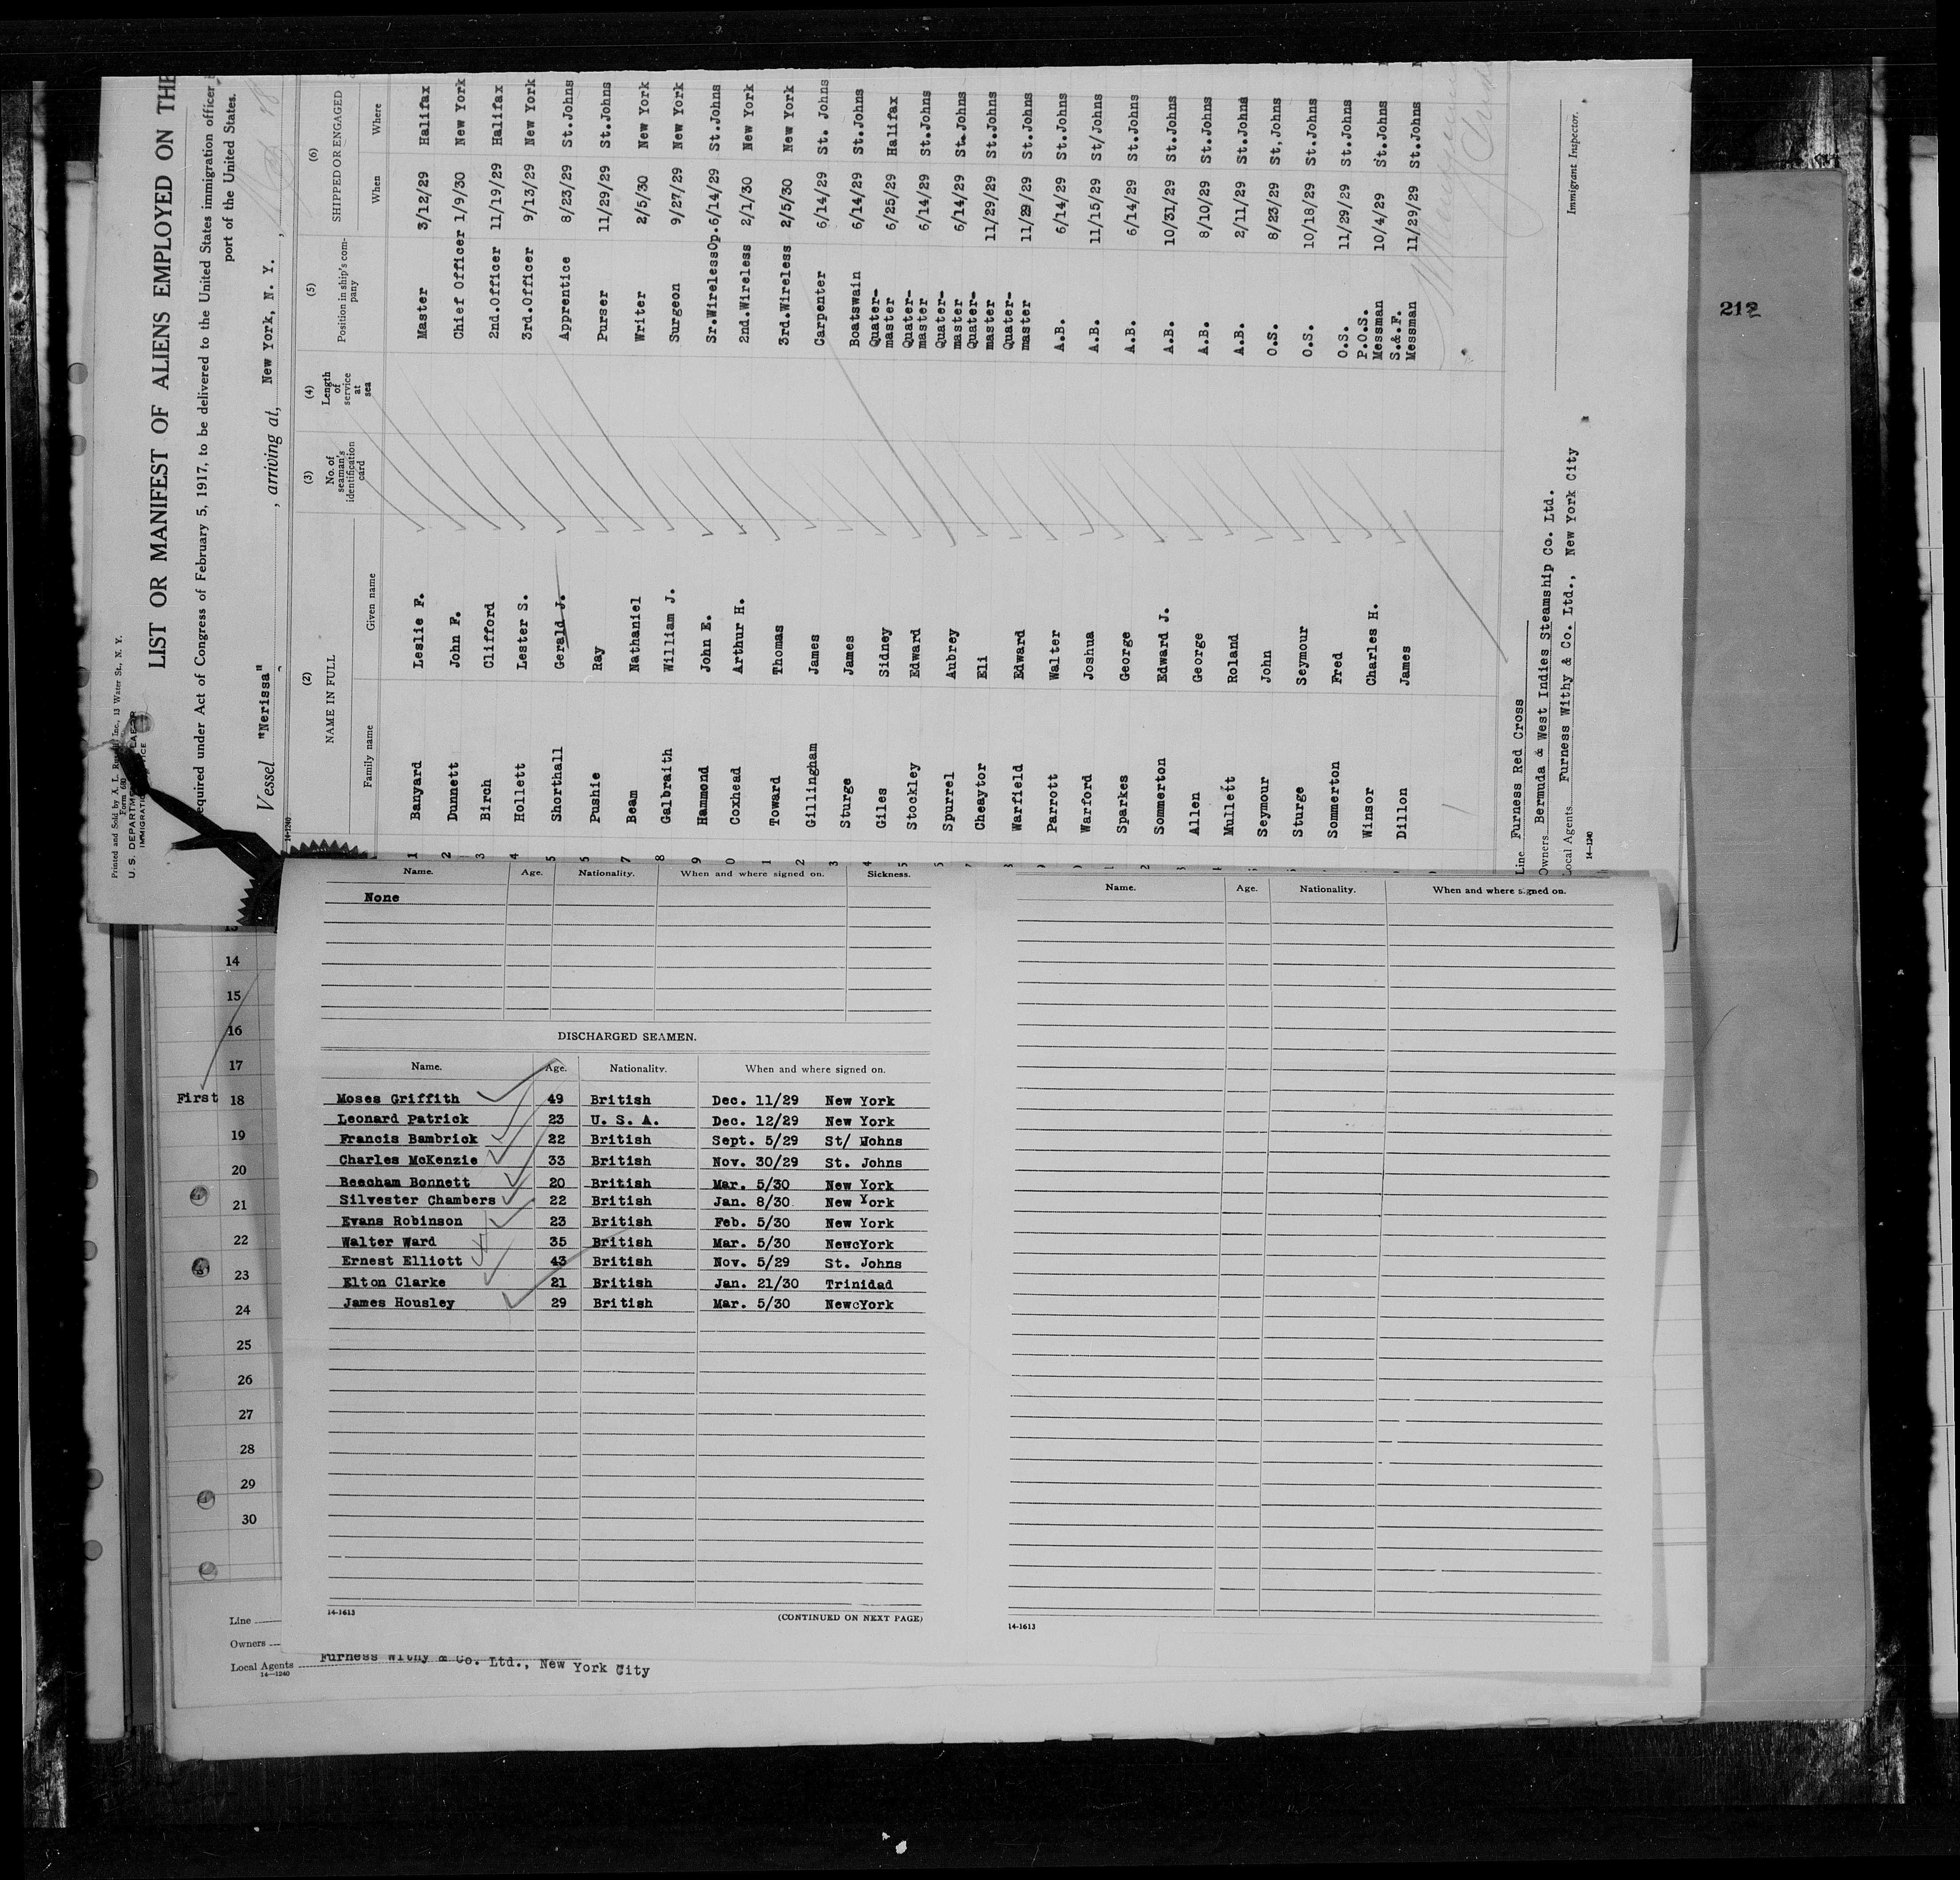 Printed and Sold by A. L. Inc., 13 Water St., N. Y.
Form 680
U. S. DEPARTMENT
IMMIGRATION
LIST OR MANIFEST OF ALIENS EMPLOYED ON THE
required under Act of Congress of February 5, 1917, to be delivered to the United States immigration officer
port of the United States.
Vessel "Nerissa", arriving at, New York, N. Y.,
14-1240
(2) (3) (4) (5) (6)
NAME IN FULL No. of seaman's identification card Length of service at sea Position in ship's company SHIPPED OR ENGAGED
Family name Given name When Where
1 Banyard Leslie F. Master 3/12/29 Halifax
2 Dunnett John F. Chief Officer 1/9/30 New York
3 Birch Clifford 2nd.Officer 11/19/29 Halifax
4 Hollett Lester S. 3rd.Officer 9/13/29 New York
5 Shorthall Gerald J. Apprentice 8/23/29 St.Johns
Pushie Ray Purser 11/29/29 St.Johns
7 Beam Nathaniel Writer 2/5/30 New York
8 Galbraith William J. Surgeon 9/27/29 New York
9 Hammond John E. Sr.WirelessOp. 6/14/29 St.Johns
0 Coxhead Arthur H. 2nd.Wireless 2/1/30 New York
1 Toward Thomas 3rd.Wireless 2/5/30 New York
2 Gillingham James Carpenter 6/14/29 St. Johns
3 Sturge James Boatswain 6/14/29 St.Johns
4 Giles Sidney Quater-master 6/25/29 Halifax
5 Stockley Edward Quater-master 6/14/29 St.Johns
Spurrel Aubrey Quater-master 6/14/29 St.Johns
Cheaytor Eli Quater-master 11/29/29 St.Johns
Warfield Edward Quater-master 11/29/29 St.Johns
Parrott Walter A.B. 6/14/29 St.Johns
Warford Joshua A.B. 11/15/29 St/Johns
Sparkes George A.B. 6/14/29 St.Johns
Sommerton Edward J. A.B. 10/31/29 St.Johns
Allen George A.B. 8/10/29 St.Johns
Mullett Roland A.B. 2/11/29 St.Johns
Seymour John O.S. 8/23/29 St,Johns
Sturge Seymour O.S. 10/18/29 St.Johns
Sommerton Fred O.S. 11/29/29 St.Johns
Winsor Charles H. P.O.S. Messman 10/4/29 St.Johns
Dillon James S.&.F. Messman 11/29/29 St.Johns
Line Furness Red Cross
Owners Bermuda & West Indies Steamship Co. Ltd.
Local Agents Furness Withy & Co. Ltd., New York City
14-1240
Immigrant Inspector.
212
Name. Age. Nationality. When and where signed on. Sickness.
None
DISCHARGED SEAMEN.
Name. Age. Nationality. When and where signed on.
Moses Griffith 49 British Dec. 11/29 New York
Leonard Patrick 23 U. S. A. Dec. 12/29 New York
Francis Bambrick 22 British Sept. 5/29 St/ Wohns
Charles McKenzie 33 British Nov. 30/29 St. Johns
Beecham Bonnett 20 British Mar. 5/30 New York
Silvester Chambers 22 British Jan. 8/30 New York
Evans Robinson 23 British Feb. 5/30 New York
Walter Ward 35 British Mar. 5/30 NewcYork
Ernest Elliott 43 British Nov. 5/29 St. Johns
Elton Clarke 21 British Jan. 21/30 Trinidad
James Housley 29 British Mar. 5/30 NewcYork
14-1613
(CONTINUED ON NEXT PAGE)
Name. Age. Nationality. When and where signed on.
14-1613
13
14
15
16
17
First 18
19
20
21
22
23
24
25
26
27
28
29
30
Line
Owners
Local Agents Furness Withy & Co. Ltd., New York City
14-1240